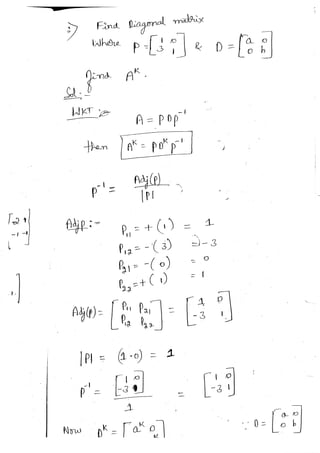 Find Diagonal matrix
Where P = [1 0 3 1] & D = [a 0 0 b]
find A^K.
Sol :-
WKT
A = P D P^-1
then A^K = P D^K P^-1
P^-1 = Adj(P) / |P|
Adj P :- P11 = + (1) = 1
P12 = - (3) = -3
P21 = - (0) = 0
P22 = + (1) = 1
Adj(P) = [P11 P21 P12 P22] = [1 0 -3 1]
|P| = (1-0) = 1
P^-1 = [1 0 -3 1] / 1 = [1 0 -3 1]
Now D^K = [a^K 0 K] ∵ D = [a 0 0 b]